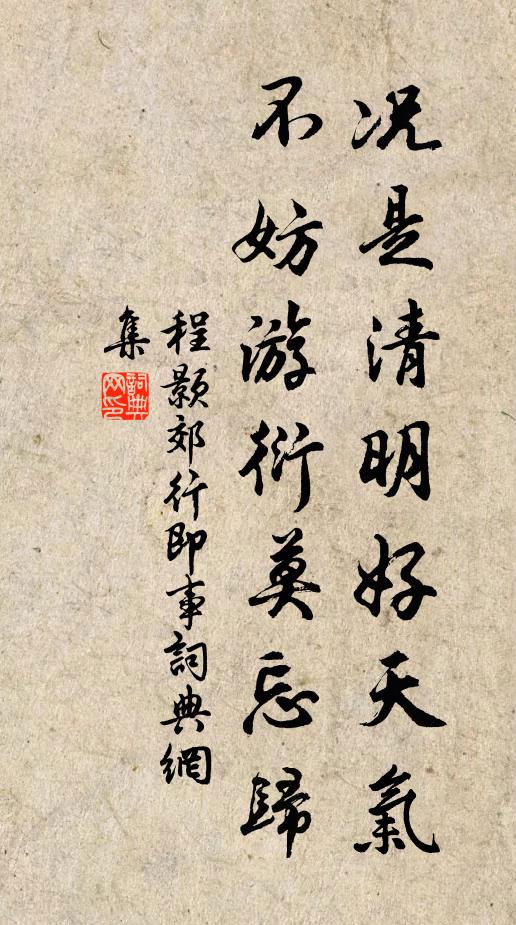 况是清明好天氣
不妨游衍莫忘歸
程顥郊行即事詞典網
集
詞典网印